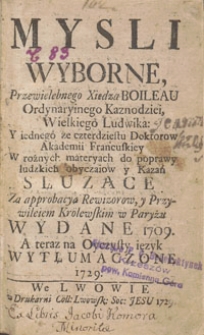 MYSLI
WYBORNE,
Przewielebnego Xiędza BOILEAU
Ordynaryinego Kaznodziei,
Wielkiego Ludwika:
Y iednego ze czterdziestu Doktorow
Akademii Francuskiey
W rożnych materyach do poprawy
ludzkich obyczaiow y Kazań
SŁUZĄCE.
Za approbacyą Rewizorow, y Przy-
wileiem Krolewskim w Paryżu
WYDANE 1709.
A teraz na Oyczysty ięzyk
WYTŁUMACZONE
1729.
WE LWOWIE
w Drukarni Coll: Lwowsk: Soc: JESU 1729
Ex Libris Jacobi Komora